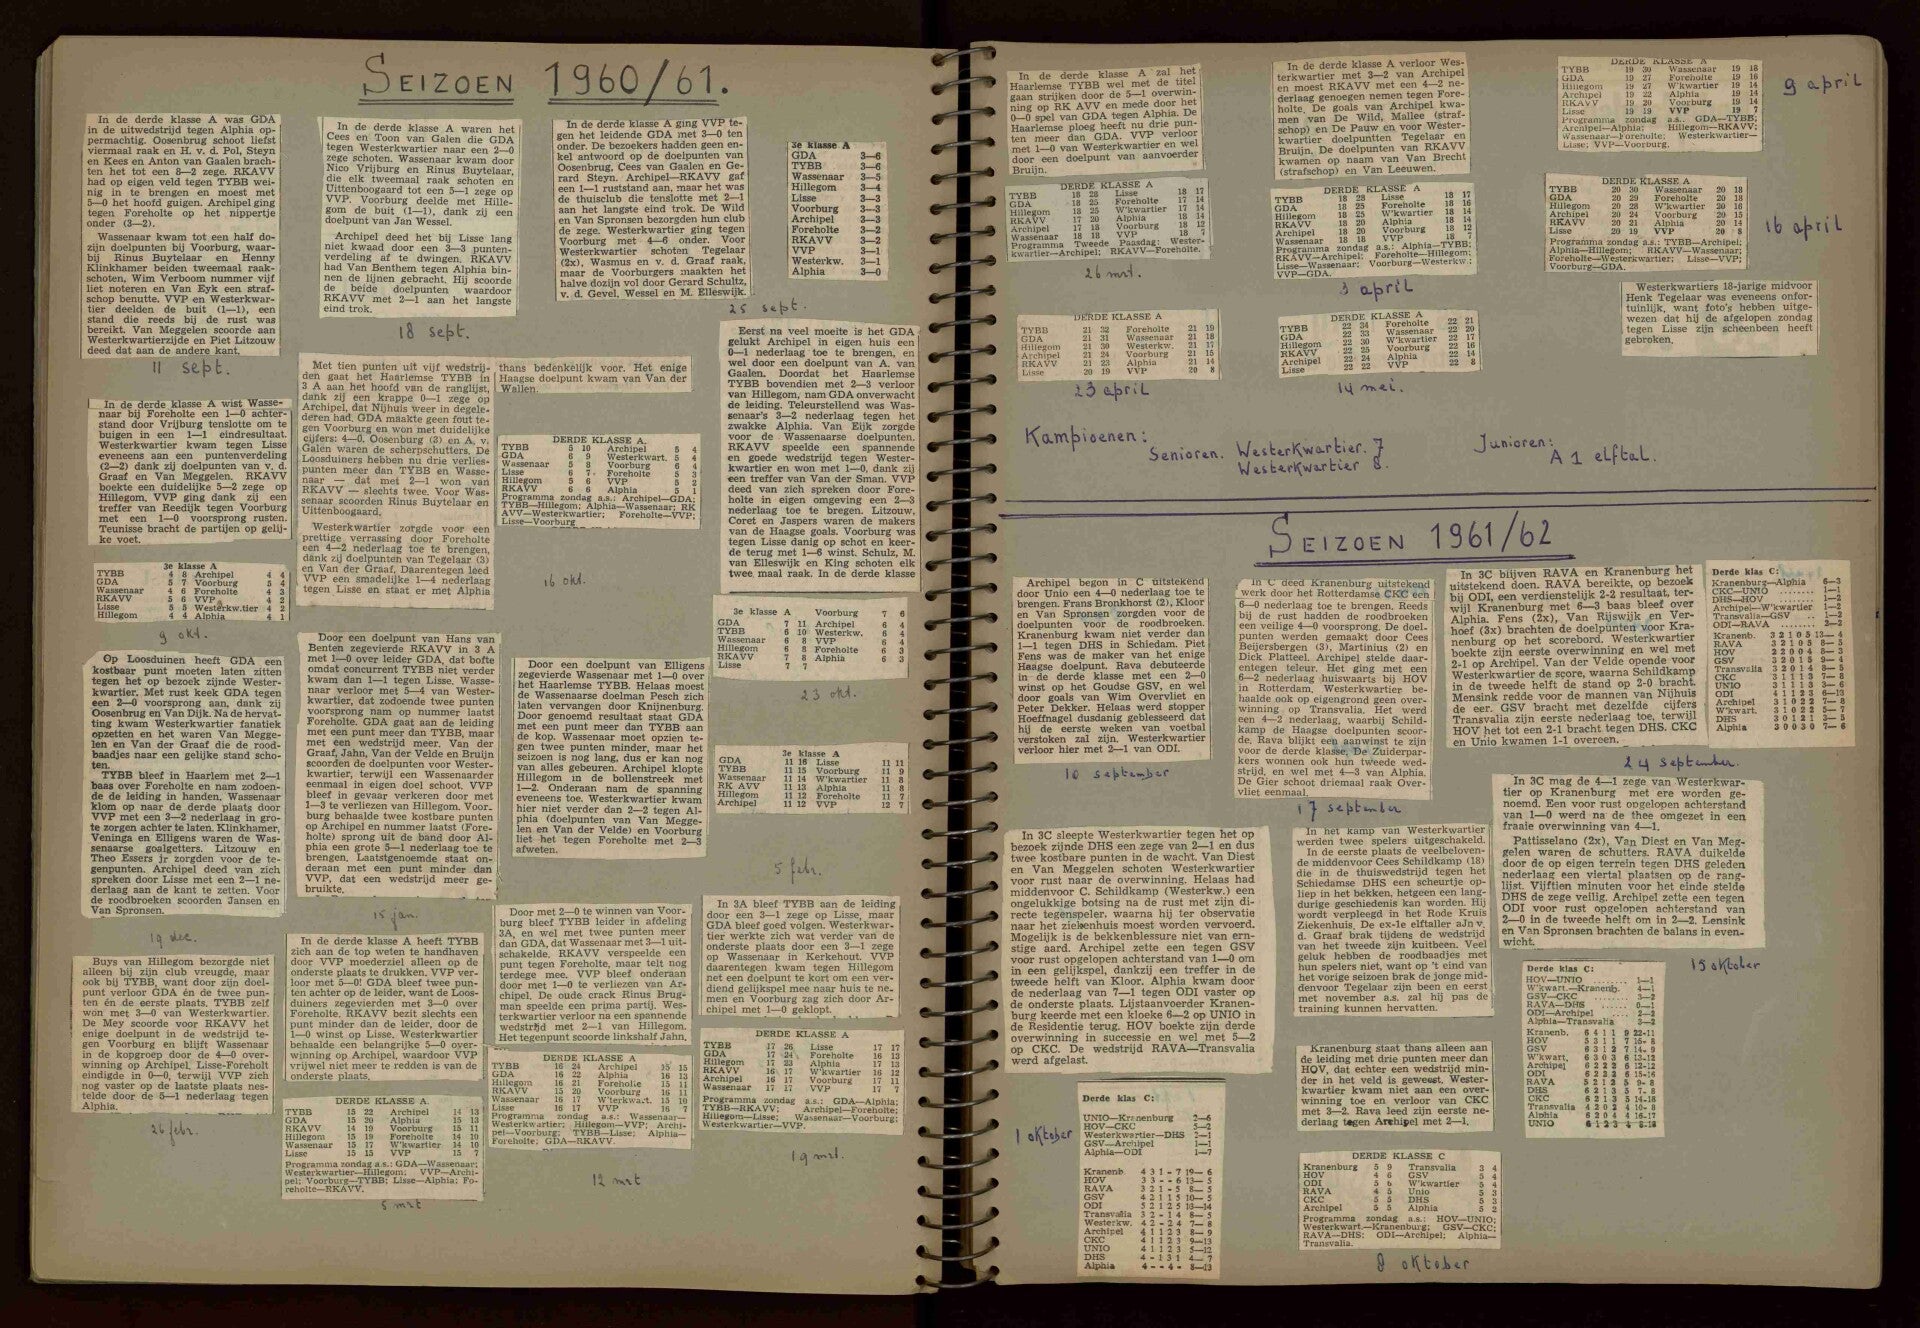 SEIZOEN 1960/61.
In de derde klasse A was GDA
in de uitwedstrijd tegen Alphia op-
permachtig. Oosenbrug schoot liefst
viermaal raak en H. v. d. Pol, Steyn
en Kees en Anton van Gaalen brach-
ten het tot een 8—2 zege. RKAVV
had op eigen veld tegen TYBB wei-
nig in te brengen en moest met
5—0 het hoofd buigen. Archipel ging
tegen Foreholte op het nippertje
onder (3—2).
Wassenaar kwam tot een half do-
zijn doelpunten bij Voorburg, waar-
bij Rinus Buytelaar en Henny
Klinkhamer beiden tweemaal raak-
schoten, Wim Verboom nummer vijf
liet noteren en Van Eyk een straf-
schop benutte. VVP en Westerkwar-
tier deelden de buit (1—1), een
stand die reeds bij de rust was
bereikt. Van Meggelen scoorde aan
Westerkwartierzijde en Piet Litzouw
deed dat aan de andere kant.
11 sept.
In de derde klasse A waren het
Cees en Toon van Galen die GDA
tegen Westerkwartier naar een 2—0
zege schoten. Wassenaar kwam door
Nico Vrijburg en Rinus Buytelaar,
die elk tweemaal raak schoten en
Uittenboogaard tot een 5—1 zege op
VVP. Voorburg deelde met Hille-
gom de buit (1—1), dank zij een
doelpunt van Jan Wessel.
Archipel deed het bij Lisse lang
niet kwaad door een 3—3 punten-
verdeling af te dwingen. RKAVV
had Van Benthem tegen Alphia bin-
nen de lijnen gebracht. Hij scoorde
de beide doelpunten waardoor
RKAVV met 2—1 aan het langste
eind trok.
18 sept.
In de derde klasse A ging VVP te-
gen het leidende GDA met 3—0 ten
onder. De bezoekers hadden geen en-
kel antwoord op de doelpunten van
Oosenbrug, Cees van Gaalen en Ge-
rard Steyn. Archipel—RKAVV gaf
een 1—1 ruststand aan, maar het was
de thuisclub die tenslotte met 2—1
aan het langste eind trok. De Wild
en Van Spronsen bezorgden hun club
de zege. Westerkwartier ging tegen
Voorburg met 4—6 onder. Voor
Westerkwartier schoten Tegelaar
(2x), Wasmus en v. d. Graaf raak,
maar de Voorburgers maakten het
halve dozijn vol door Gerard Schultz,
v. d. Gevel, Wessel en M. Elleswijk.
3e klasse A
GDA 3—6
TYBB 3—6
Wassenaar 3—5
Hillegom 3—4
Lisse 3—3
Voorburg 3—3
Archipel 3—3
Foreholte 3—2
RKAVV 3—2
VVP 3—1
Westerkw. 3—1
Alphia 3—0
25 sept.
In de derde klasse A wist Wasse-
naar bij Foreholte een 1—0 achter-
stand door Vrijburg tenslotte om te
buigen in een 1—1 eindresultaat.
Westerkwartier kwam tegen Lisse
eveneens aan een puntenverdeling
(2—2) dank zij doelpunten van v. d.
Graaf en Van Meggelen. RKAVV
boekte een duidelijke 5—2 zege op
Hillegom. VVP ging dank zij een
treffer van Reedijk tegen Voorburg
met een 1—0 voorsprong rusten.
Teunisse bracht de partijen op gelij-
ke voet.
3e klasse A
TYBB 4 8 Archipel 4 4
GDA 5 7 Voorburg 5 4
Wassenaar 4 6 Foreholte 4 3
RKAVV 5 6 VVP 4 2
Lisse 5 5 Westerkw.tier 4 2
Hillegom 4 4 Alphia 4 1
9 okt.
Met tien punten uit vijf wedstrij-
den gaat het Haarlemse TYBB in
3 A aan het hoofd van de ranglijst,
dank zij een krappe 0—1 zege op
Archipel, dat Nijhuis weer in degele-
deren had. GDA maakte geen fout te-
gen Voorburg en won met duidelijke
cijfers: 4—0. Oosenburg (3) en A. v.
Galen waren de scherpschutters. De
Loosduiners hebben nu drie verlies-
punten meer dan TYBB en Wasse-
naar — dat met 2—1 won van
RKAVV — slechts twee. Voor Was-
senaar scoorden Rinus Buytelaar en
Uittenboogaard.
Westerkwartier zorgde voor een
prettige verrassing door Foreholte
een 4—2 nederlaag toe te brengen,
dank zij doelpunten van Tegelaar (3)
en Van der Graaf. Daarentegen leed
VVP een smadelijke 1—4 nederlaag
tegen Lisse en staat er met Alphia
thans bedenkelijk voor. Het enige
Haagse doelpunt kwam van Van der
Wallen.
DERDE KLASSE A.
TYBB 5 10 Archipel 5 4
GDA 6 9 Westerkwart. 5 4
Wassenaar 5 8 Voorburg 6 4
Lisse 6 7 Foreholte 5 3
Hillegom 5 6 VVP 5 2
RKAVV 6 6 Alphia 5 1
Programma zondag a.s.: Archipel—GDA;
TYBB—Hillegom; Alphia—Wassenaar; RK
AVV—Westerkwartier; Foreholte—VVP;
Lisse—Voorburg
16 okt.
Eerst na veel moeite is het GDA
gelukt Archipel in eigen huis een
0—1 nederlaag toe te brengen, en
wel door een doelpunt van A. van
Gaalen. Doordat het Haarlemse
TYBB bovendien met 2—3 verloor
van Hillegom, nam GDA onverwacht
de leiding. Teleurstellend was Was-
senaar's 3—2 nederlaag tegen het
zwakke Alphia. Van Eijk zorgde
voor de Wassenaarse doelpunten.
RKAVV speelde een spannende
en goede wedstrijd tegen Wester-
kwartier en won met 1—0, dank zij
een treffer van Van der Sman. VVP
deed van zich spreken door Fore-
holte in eigen omgeving een 2—3
nederlaag toe te brengen. Litzouw,
Coret en Jaspers waren de makers
van de Haagse goals. Voorburg was
tegen Lisse danig op schot en keer-
de terug met 1—6 winst. Schulz, M.
van Elleswijk en King schoten elk
twee maal raak. In de derde klasse
3e klasse A Voorburg 7 6
GDA 7 11 Archipel 6 4
TYBB 6 10 Westerkw. 6 4
Wassenaar 6 8 VVP 6 4
Hillegom 6 8 Foreholte 6 3
RKAVV 7 8 Alphia 6 3
Lisse 7 7
23 okt.
Op Loosduinen heeft GDA een
kostbaar punt moeten laten zitten
tegen het op bezoek zijnde Wester-
kwartier. Met rust keek GDA tegen
een 2—0 voorsprong aan, dank zij
Oosenbrug en Van Dijk. Na de hervat-
ting kwam Westerkwartier fanatiek
opzetten en het waren Van Megge-
len en Van der Graaf die de rood-
baadjes naar een gelijke stand scho-
ten.
TYBB bleef in Haarlem met 2—1
baas over Foreholte en nam zodoen-
de de leiding in handen. Wassenaar
klom op naar de derde plaats door
VVP met een 3—2 nederlaag in gro-
te zorgen achter te laten. Klinkhamer,
Venings en Elligens waren de Was-
senaarse goalgetters. Litzouw en
Theo Essers jr zorgden voor de te-
genpunten. Archipel deed van zich
spreken door Lisse met een 2—1 ne-
derlaag aan de kant te zetten. Voor
de roodbroeken scoorden Jansen en
Van Spronsen.
19 dec.
Door een doelpunt van Hans van
Benten zegevierde RKAVV in 3 A
met 1—0 over leider GDA, dat bofte
omdat concurrent TYBB niet verder
kwam dan 1—1 tegen Lisse. Wasse-
naar verloor met 5—4 van Wester-
kwartier, dat zodoende twee punten
voorsprong nam op nummer laatst
Foreholte. GDA gaat aan de leiding
met een punt meer dan TYBB, maar
met een wedstrijd meer. Van der
Graaf, Jahn, Van der Velde en Bruijn
scoorden de doelpunten voor Wester-
kwartier, terwijl een Wassenaarder
eenmaal in eigen doel schoot. VVP
bleef in gevaar verkeren door met
1—3 te verliezen van Hillegom. Voor-
burg behaalde twee kostbare punten
op Archipel en nummer laatst (Fore-
holte) sprong uit de band door Al-
phia een grote 5—1 nederlaag toe te
brengen. Laatstgenoemde staat on-
deraan met een punt minder dan
VVP, dat een wedstrijd meer ge-
bruikte.
15 jan.
Door een doelpunt van Elligens
zegevierde Wassenaar met 1—0 over
het Haarlemse TYBB. Helaas moest
de Wassenaarse doelman Pesch zich
laten vervangen door Knijnenburg.
Door genoemd resultaat staat GDA
met een punt meer dan TYBB aan
de kop. Wassenaar moet opzien te-
gen twee punten minder, maar het
seizoen is nog lang, dus er kan nog
van alles gebeuren. Archipel klopte
Hillegom in de bollenstreek met
1—2. Onderaan nam de spanning
eveneens toe. Westerkwartier kwam
hier niet verder dan 2—2 tegen Al-
phia (doelpunten van Van Megge-
len en Van der Velde) en Voorburg
liet het tegen Foreholte met 2—3
afweten.
3e klasse A
GDA 11 16 Lisse 11 11
TYBB 11 15 Voorburg 11 9
Wassenaar 11 14 W'kwartier 11 8
RK AVV 11 13 Alphia 11 8
Hillegom 11 12 Foreholte 11 7
Archipel 11 12 VVP 12 7
5 febr.
Buys van Hillegom bezorgde niet
alleen bij zijn club vreugde, maar
ook bij TYBB, want door zijn doel-
punt verloor GDA én de twee pun-
ten én de eerste plaats. TYBB zelf
won met 3—0 van Westerkwartier.
De Mey scoorde voor RKAVV het
enige doelpunt in de wedstrijd te-
gen Voorburg en blijft Wassenaar
in de kopgroep door de 4—0 over-
winning op Archipel. Lisse-Foreholt
eindigde in 0—0, terwijl VVP zich
nog vaster op de laatste plaats nes-
telde door de 5—1 nederlaag tegen
Alphia.
26 febr.
In de derde klasse A heeft TYBB
zich aan de top weten te handhaven
door VVP moederziel alleen op de
onderste plaats te drukken. VVP ver-
loor met 5—0! GDA bleef twee pun-
ten achter op de leider, want de Loos-
duiners zegevierden met 3—0 over
Foreholte. RKAVV bezit slechts een
punt minder dan de leider, door de
1—0 winst op Lisse. Westerkwartier
behaalde een belangrijke 5—0 over-
winning op Archipel, waardoor VVP
vrijwel niet meer te redden is van de
onderste plaats.
DERDE KLASSE A.
TYBB 15 22 Archipel 14 13
GDA 15 20 Alphia 15 13
RKAVV 14 19 Voorburg 15 11
Hillegom 15 19 Foreholte 14 10
Wassenaar 15 17 W'kwartier 14 10
Lisse 15 15 VVP 15 7
Programma zondag a.s.: GDA—Wassenaar;
Westerkwartier—Hillegom; VVP—Archi-
pel; Voorburg—TYBB; Lisse—Alphia; Fo-
reholte—RKAVV.
5 mrt
Door met 2—0 te winnen van Voor-
burg bleef TYBB leider in afdeling
3A, en wel met twee punten meer
dan GDA, dat Wassenaar met 3—1 uit-
schakelde. RKAVV verspeelde een
punt tegen Foreholte, maar telt nog
terdege mee. VVP bleef onderaan
door met 1—0 te verliezen van Ar-
chipel. De oude crack Rinus Brug-
man speelde een prima partij. Wes-
terkwartier verloor na een spannende
wedstrijd met 2—1 van Hillegom.
Het tegenpunt scoorde linkshalf Jahn.
DERDE KLASSE A
TYBB 16 24 Archipel 15 15
GDA 16 22 Alphia 16 13
Hillegom 16 21 Foreholte 15 11
RKAVV 15 20 Voorburg 16 11
Wassenaar 16 17 W'terkwart. 15 10
Lisse 16 17 VVP 16 7
Programma zondag a.s.: Wassenaar—
Westerkwartier; Hillegom—VVP; Archi-
pel—Voorburg; TYBB—Lisse; Alphia—
Foreholte; GDA—RKAVV.
12 mrt
In 3A bleef TYBB aan de leiding
door een 3—1 zege op Lisse, maar
GDA bleef goed volgen. Westerkwar-
tier werkte zich wat verder van de
onderste plaats door een 3—1 zege
op Wassenaar in Kerkehout. VVP
daarentegen kwam tegen Hillegom
net een doelpunt te kort om een ver-
diend gelijkspel mee naar huis te ne-
men en Voorburg zag zich door Ar-
chipel met 1—0 geklopt.
DERDE KLASSE A
TYBB 17 26 Lisse 17 17
GDA 17 24 Foreholte 16 13
Hillegom 17 23 Alphia 17 13
RKAVV 16 20 W'kwartier 16 12
Archipel 16 17 Voorburg 17 11
Wassenaar 17 17 VVP 17 7
Programma zondag a.s.: GDA—Alphia;
TYBB—RKAVV; Archipel—Foreholte;
Hillegom—Lisse; Wassenaar—Voorburg;
Westerkwartier—VVP.
19 mrt.
In de derde klasse A zal het
Haarlemse TYBB wel met de titel
gaan strijken door de 5—1 overwin-
ning op RK AVV en mede door het
0—0 spel van GDA tegen Alphia. De
Haarlemse ploeg heeft nu drie pun-
ten meer dan GDA. VVP verloor
met 1—0 van Westerkwartier en wel
door een doelpunt van aanvoerder
Bruijn.
DERDE KLASSE A
TYBB 18 28 Lisse 18 17
GDA 18 25 Foreholte 17 14
Hillegom 18 25 W'kwartier 17 14
RKAVV 17 20 Alphia 18 14
Archipel 17 18 Voorburg 18 12
Wassenaar 18 18 VVP 18 7
Programma Tweede Paasdag: Wester-
kwartier—Archipel; RKAVV—Foreholte.
26 mrt.
In de derde klasse A verloor Wes-
terkwartier met 3—2 van Archipel
en moest RKAVV met een 4—2 ne-
derlaag genoegen nemen tegen Fore-
holte. De goals van Archipel kwa-
men van De Wild, Mallee (straf-
schop) en De Pauw en voor Wester-
kwartier doelpunten Tegelaar en
Bruijn. De doelpunten van RKAVV
kwamen op naam van Van Brecht
(strafschop) en Van Leeuwen.
DERDE KLASSE A
TYBB 18 28 Lisse 18 17
GDA 18 25 Foreholte 18 16
Hillegom 18 25 W'kwartier 18 14
Archipel 18 20 Alphia 18 14
RKAVV 18 20 Voorburg 18 12
Wassenaar 18 18 VVP 18 7
Programma zondag a.s.: Alphia—TYBB;
RKAVV—Archipel; Foreholte—Hillegom;
Lisse—Wassenaar; Voorburg—Westerkw.;
VVP—GDA.
3 april
DERDE KLASSE A
TYBB 19 30 Wassenaar 19 18
GDA 19 27 Foreholte 19 16
Hillegom 19 27 W'kwartier 19 14
Archipel 19 22 Alphia 19 14
RKAVV 19 20 Voorburg 19 14
Lisse 19 19 VVP 19 7
Programma zondag a.s.: GDA—TYBB;
Archipel—Alphia; Hillegom—RKAVV;
Wassenaar—Foreholte; Westerkwartier—
Lisse; VVP—Voorburg.
9 april
DERDE KLASSE A
TYBB 20 30 Wassenaar 20 18
GDA 20 29 Foreholte 20 18
Hillegom 20 28 W'kwartier 20 16
Archipel 20 24 Voorburg 20 15
RKAVV 20 21 Alphia 20 14
Lisse 20 19 VVP 20 8
Programma zondag a.s.: TYBB—Archipel;
Alphia—Hillegom; RKAVV—Wassenaar;
Foreholte—Westerkwartier; Lisse—VVP;
Voorburg—GDA.
16 april
DERDE KLASSE A
TYBB 21 32 Foreholte 21 19
GDA 21 31 Wassenaar 21 18
Hillegom 21 30 Westerkw. 21 17
Archipel 21 24 Voorburg 21 15
RKAVV 21 23 Alphia 21 14
Lisse 20 19 VVP 20 8
23 april
DERDE KLASSE A
TYBB 22 34 Foreholte 22 21
GDA 22 33 Wassenaar 22 20
Hillegom 22 30 W'kwartier 22 17
RKAVV 22 25 Voorburg 22 16
Archipel 22 24 Alphia 22 14
Lisse 22 22 VVP 22 8
14 mei.
Westerkwartiers 18-jarige midvoor
Henk Tegelaar was eveneens onfor-
tuinlijk, want foto's hebben uitge-
wezen dat hij de afgelopen zondag
tegen Lisse zijn scheenbeen heeft
gebroken.
Kampioenen:
Senioren. Westerkwartier. 7
Westerkwartier 8.
Junioren:
A 1 elftal.
SEIZOEN 1961/62
Archipel begon in C uitstekend
door Unio een 4—0 nederlaag toe te
brengen. Frans Bronkhorst (2), Kloor
en Van Spronsen zorgden voor de
doelpunten voor de roodbroeken.
Kranenburg kwam niet verder dan
1—1 tegen DHS in Schiedam. Piet
Fens was de maker van het enige
Haagse doelpunt. Rava debuteerde
in de derde klasse met een 2—0
winst op het Goudse GSV, en wel
door goals van Wim Overvliet en
Peter Dekker. Helaas werd stopper
Hoeffnagel dusdanig geblesseerd dat
hij de eerste weken van voetbal
verstoken zal zijn. Westerkwartier
verloor hier met 2—1 van ODI.
10 september
In C deed Kranenburg uitstekend
werk door het Rotterdamse CKC een
6—0 nederlaag toe te brengen. Reeds
bij de rust hadden de roodbroeken
een veilige 4—0 voorsprong. De doel-
punten werden gemaakt door Cees
Beijersbergen (3), Martinius (2) en
Dick Platteel. Archipel stelde daar-
entegen teleur. Het ging met een
6—2 nederlaag huiswaarts bij HOV
in Rotterdam, Westerkwartier be-
haalde ook op eigengrond geen over-
winning op Transvalia. Het werd
een 4—2 nederlaag, waarbij Schild-
kamp de Haagse doelpunten scoor-
de. Rava blijkt een aanwinst te zijn
voor de derde klasse. De Zuiderpar-
kers wonnen ook hun tweede wed-
strijd, en wel met 4—3 van Alphia.
De Gier schoot driemaal raak Over-
vliet eenmaal.
17 september
In 3C blijven RAVA en Kranenburg het
uitstekend doen. RAVA bereikte, op bezoek
bij ODI, een verdienstelijk 2-2 resultaat, ter-
wijl Kranenburg met 6—3 baas bleef over
Alphia. Fens (2x), Van Rijswijk en Ver-
hoef (3x) brachten de doelpunten voor Kra-
nenburg op het scorebord. Westerkwartier
boekte zijn eerste overwinning en wel met
2-1 op Archipel. Van der Velde opende voor
Westerkwartier de score, waarna Schildkamp
in de tweede helft de stand op 2-0 bracht.
Mensink redde voor de mannen van Nijhuis
de eer. GSV bracht met dezelfde cijfers
Transvalia zijn eerste nederlaag toe, terwijl
HOV het tot een 2-1 bracht tegen DHS. CKC
en Unio kwamen 1-1 overeen.
Derde klas C:
Kranenburg—Alphia 6—3
CKC—UNIO 1—1
DHS—HOV 1—2
Archipel—W'kwartier 1—2
Transvalia—GSV 1—2
ODI—RAVA 2—2
Kranenb. 3 2 1 0 5 13— 4
RAVA 3 2 1 0 5 8— 5
HOV 2 2 0 0 4 8— 3
GSV 3 2 0 1 5 9— 4
Transvalia 3 2 0 1 4 8— 5
CKC 3 1 1 1 3 7— 8
UNIO 3 1 1 1 3 3— 6
ODI 4 1 1 2 3 6—13
Archipel 3 1 0 2 2 7— 8
W'kwart. 3 1 0 2 2 5— 7
DHS 3 0 1 2 1 3— 5
Alphia 3 0 0 3 0 7— 6
24 september.
In 3C sleepte Westerkwartier tegen het op
bezoek zijnde DHS een zege van 2—1 en dus
twee kostbare punten in de wacht. Van Diest
en Van Meggelen schoten Westerkwartier
voor rust naar de overwinning. Helaas had
middenvoor C. Schildkamp (Westerkw.) een
ongelukkige botsing na de rust met zijn di-
recte tegenspeler, waarna hij ter observatie
naar het ziekenhuis moest worden vervoerd.
Mogelijk is de bekkenblessure niet van ern-
stige aard. Archipel zette een tegen GSV
voor rust opgelopen achterstand van 1—0 om
in een gelijkspel, dankzij een treffer in de
tweede helft van Kloor. Alphia kwam door
de nederlaag van 7—1 tegen ODI vaster op
de onderste plaats. Lijstaanvoerder Kranen-
burg keerde met een kloeke 6—2 op UNIO in
de Residentie terug. HOV boekte zijn derde
overwinning in successie en wel met 5—2
op CKC. De wedstrijd RAVA—Transvalia
werd afgelast.
Derde klas C:
UNIO—Kranenburg 2—6
HOV—CKC 5—2
Westerkwartier—DHS 2—1
GSV—Archipel 1—1
Alphia—ODI 1—7
Kranenb. 4 3 1 - 7 19— 6
HOV 3 3 - - 6 13— 5
RAVA 3 2 1 - 5 8— 5
GSV 4 2 1 1 5 10— 5
ODI 5 2 1 2 5 13—14
Transvalia 3 2 - 1 4 8— 5
Westerkw. 4 2 - 2 4 7— 8
Archipel 4 1 1 2 3 8— 9
CKC 4 1 1 2 3 9—13
UNIO 4 1 1 2 3 5—12
DHS 4 - 1 3 1 4— 7
Alphia 4 - - 4 - 8—13
1 oktober
In het kamp van Westerkwartier
werden twee spelers uitgeschakeld.
In de eerste plaats de veelbeloven-
de middenvoor Cees Schildkamp (18)
die in de thuiswedstrijd tegen het
Schiedamse DHS een scheurtje op-
liep in het bekken, hetgeen een lang-
durige geschiedenis kan worden. Hij
wordt verpleegd in het Rode Kruis
Ziekenhuis. De ex-1e elftaller aJn v.
d. Graaf brak tijdens de wedstrijd
van het tweede zijn kuitbeen. Veel
geluk hebben de roodbaadjes met
hun spelers niet, want op 't eind van
het vorige seizoen brak de jonge mid-
denvoor Tegelaar zijn been en eerst
met november a.s. zal hij pas de
training kunnen hervatten.
Kranenburg staat thans alleen aan
de leiding met drie punten meer dan
HOV, dat echter een wedstrijd min-
der in het veld is geweest. Wester-
kwartier kwam niet aan een over-
winning toe en verloor van CKC
met 3—2. Rava leed zijn eerste ne-
derlaag tegen Archipel met 2—1.
DERDE KLASSE C
Kranenburg 5 9 Transvalia 3 4
HOV 4 6 GSV 5 4
ODI 5 6 W'kwartier 5 4
RAVA 4 5 Unio 5 3
CKC 5 5 DHS 5 3
Archipel 5 5 Alphia 5 2
Programma zondag a.s.: HOV—UNIO;
Westerkwart.—Kranenburg; GSV—CKC;
RAVA—DHS; ODI—Archipel; Alphia—
Transvalia.
8 oktober
In 3C mag de 4—1 zege van Westerkwar-
tier op Kranenburg met ere worden ge-
noemd. Een voor rust opgelopen achterstand
van 1—0 werd na de thee omgezet in een
fraaie overwinning van 4—1.
Pattisselano (2x), Van Diest en Van Meg-
gelen waren de schutters. RAVA duikelde
door de op eigen terrein tegen DHS geleden
nederlaag een viertal plaatsen op de rang-
lijst. Vijftien minuten voor het einde stelde
DHS de zege veilig. Archipel zette een tegen
ODI voor rust opgelopen achterstand van
2—0 in de tweede helft om in 2—2. Lensink
en Van Spronsen brachten de balans in even-
wicht.
15 oktober
Derde klas C:
HOV—UNIO 1—1
W'kwart.—Kranenb. 4—1
GSV—CKC 3—2
RAVA—DHS 0—1
ODI—Archipel 2—2
Alphia—Transvalia 3—2
Kranenb. 6 4 1 1 9 22-11
HOV 5 3 1 1 7 16- 8
GSV 6 3 1 2 7 14- 9
W'kwart. 6 3 0 3 6 13-12
Archipel 6 2 2 2 6 12-12
ODI 6 2 2 2 6 15-16
RAVA 5 2 1 2 5 9- 8
DHS 6 2 1 3 5 7- 8
CKC 6 2 1 3 5 14-18
Transvalia 4 2 0 2 4 10- 8
Alphia 6 2 0 4 4 16-17
UNIO 6 1 2 3 4 8-18